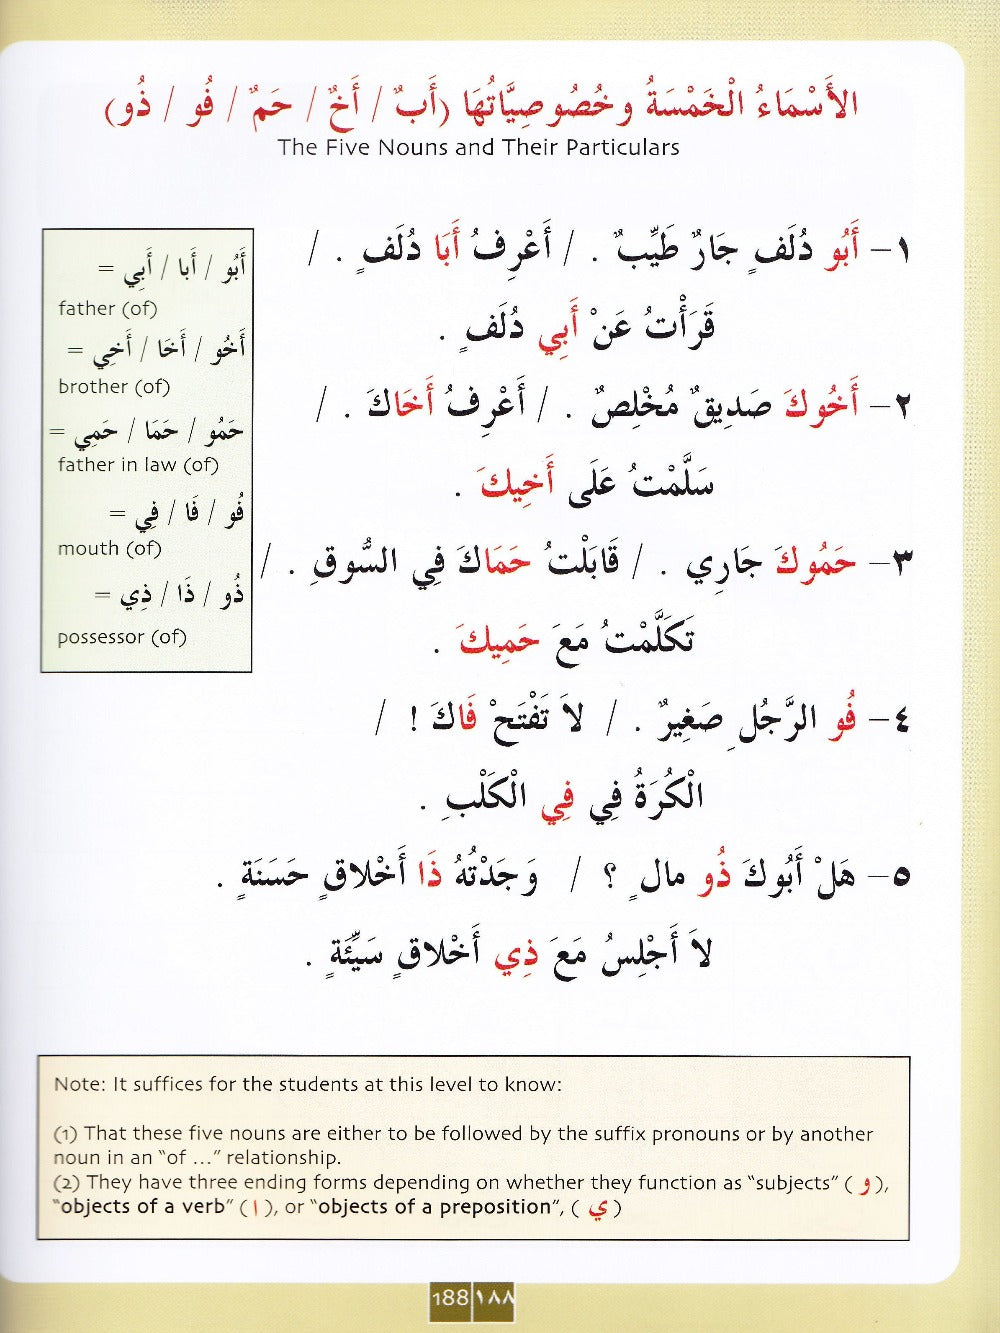 الأَسْمَاءُ الْخَمْسَةُ وخُصُوصِيَّاتُهَا (أَبٌ / أَخٌ / حَمٌ / فُو / ذُو)
The Five Nouns and Their Particulars
١- أَبُو دُلَفٍ جَارٌ طَيِّبٌ . / أَعْرِفُ أَبَا دُلَفٍ . /
قَرَأْتُ عَنْ أَبِي دُلَفٍ .
٢- أَخُوكَ صَدِيقٌ مُخْلِصٌ . / أَعْرِفُ أَخَاكَ . /
سَلَّمْتُ عَلَى أَخِيكَ .
٣- حَمُوكَ جَارِي . / قَابَلْتُ حَمَاكَ فِي السُّوقِ . /
تَكَلَّمْتُ مَعَ حَمِيكَ .
٤- فُو الرَّجُلِ صَغِيرٌ . / لاَ تَفْتَحْ فَاكَ ! /
الْكُرَةُ فِي فِي الْكَلْبِ .
٥- هَلْ أَبُوكَ ذُو مالٍ ؟ / وَجَدْتُهُ ذَا أَخْلاقٍ حَسَنَةٍ .
لاَ أَجْلِسُ مَعَ ذِي أَخْلاقٍ سَيِّئَةٍ .
أَبُو / أَبا / أَبِي =
father (of)
أَخُو / أَخَا / أَخِي =
brother (of)
حَمُو / حَمَا / حَمِي =
father in law (of)
فُو / فَا / فِي =
mouth (of)
ذُو / ذَا / ذِي =
possessor (of)
Note: It suffices for the students at this level to know:
(1) That these five nouns are either to be followed by the suffix pronouns or by another
noun in an “of ...” relationship.
(2) They have three ending forms depending on whether they function as “subjects” ( و ),
“objects of a verb” ( ا ), or “objects of a preposition”, ( ي )
188 ١٨٨